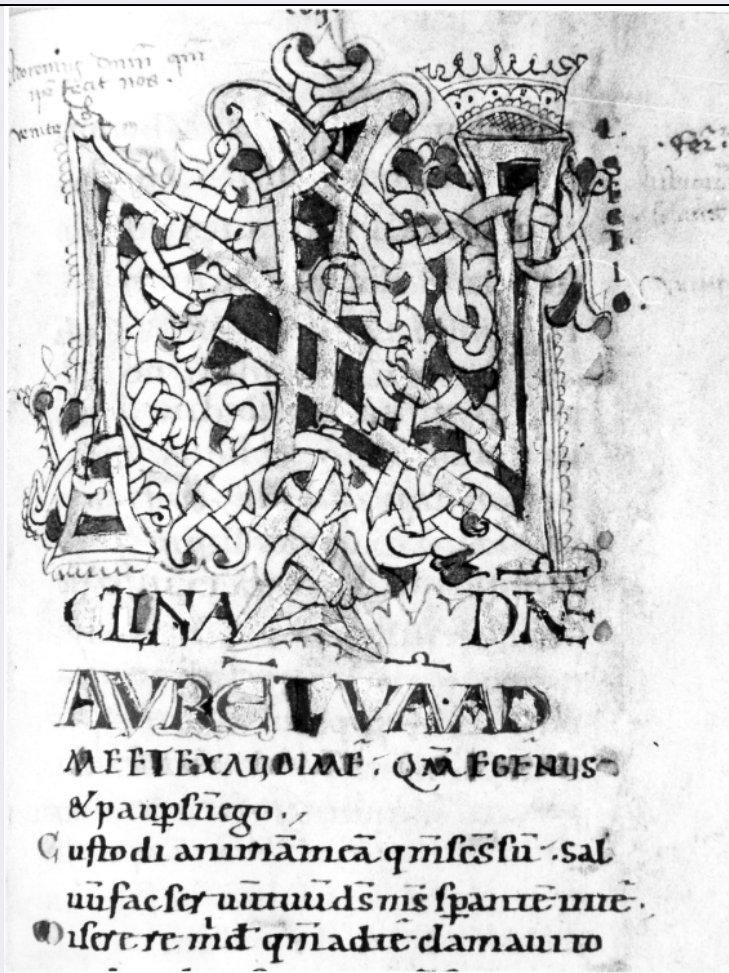 dnm̄ qm̄
ipse fecit nos.
venite
IN
CLINA DN̄E
AVRE TVA AD
ME ET EXAUDI ME. QM̄ EGENUS
& paup̱ sū ego.
Custodi animā meā qm̄ scs̄ sū. Sal
uū fac ser uū tuū ds̄ ms̄ sp̱antē in te.
qm̄ ad te clamaui to